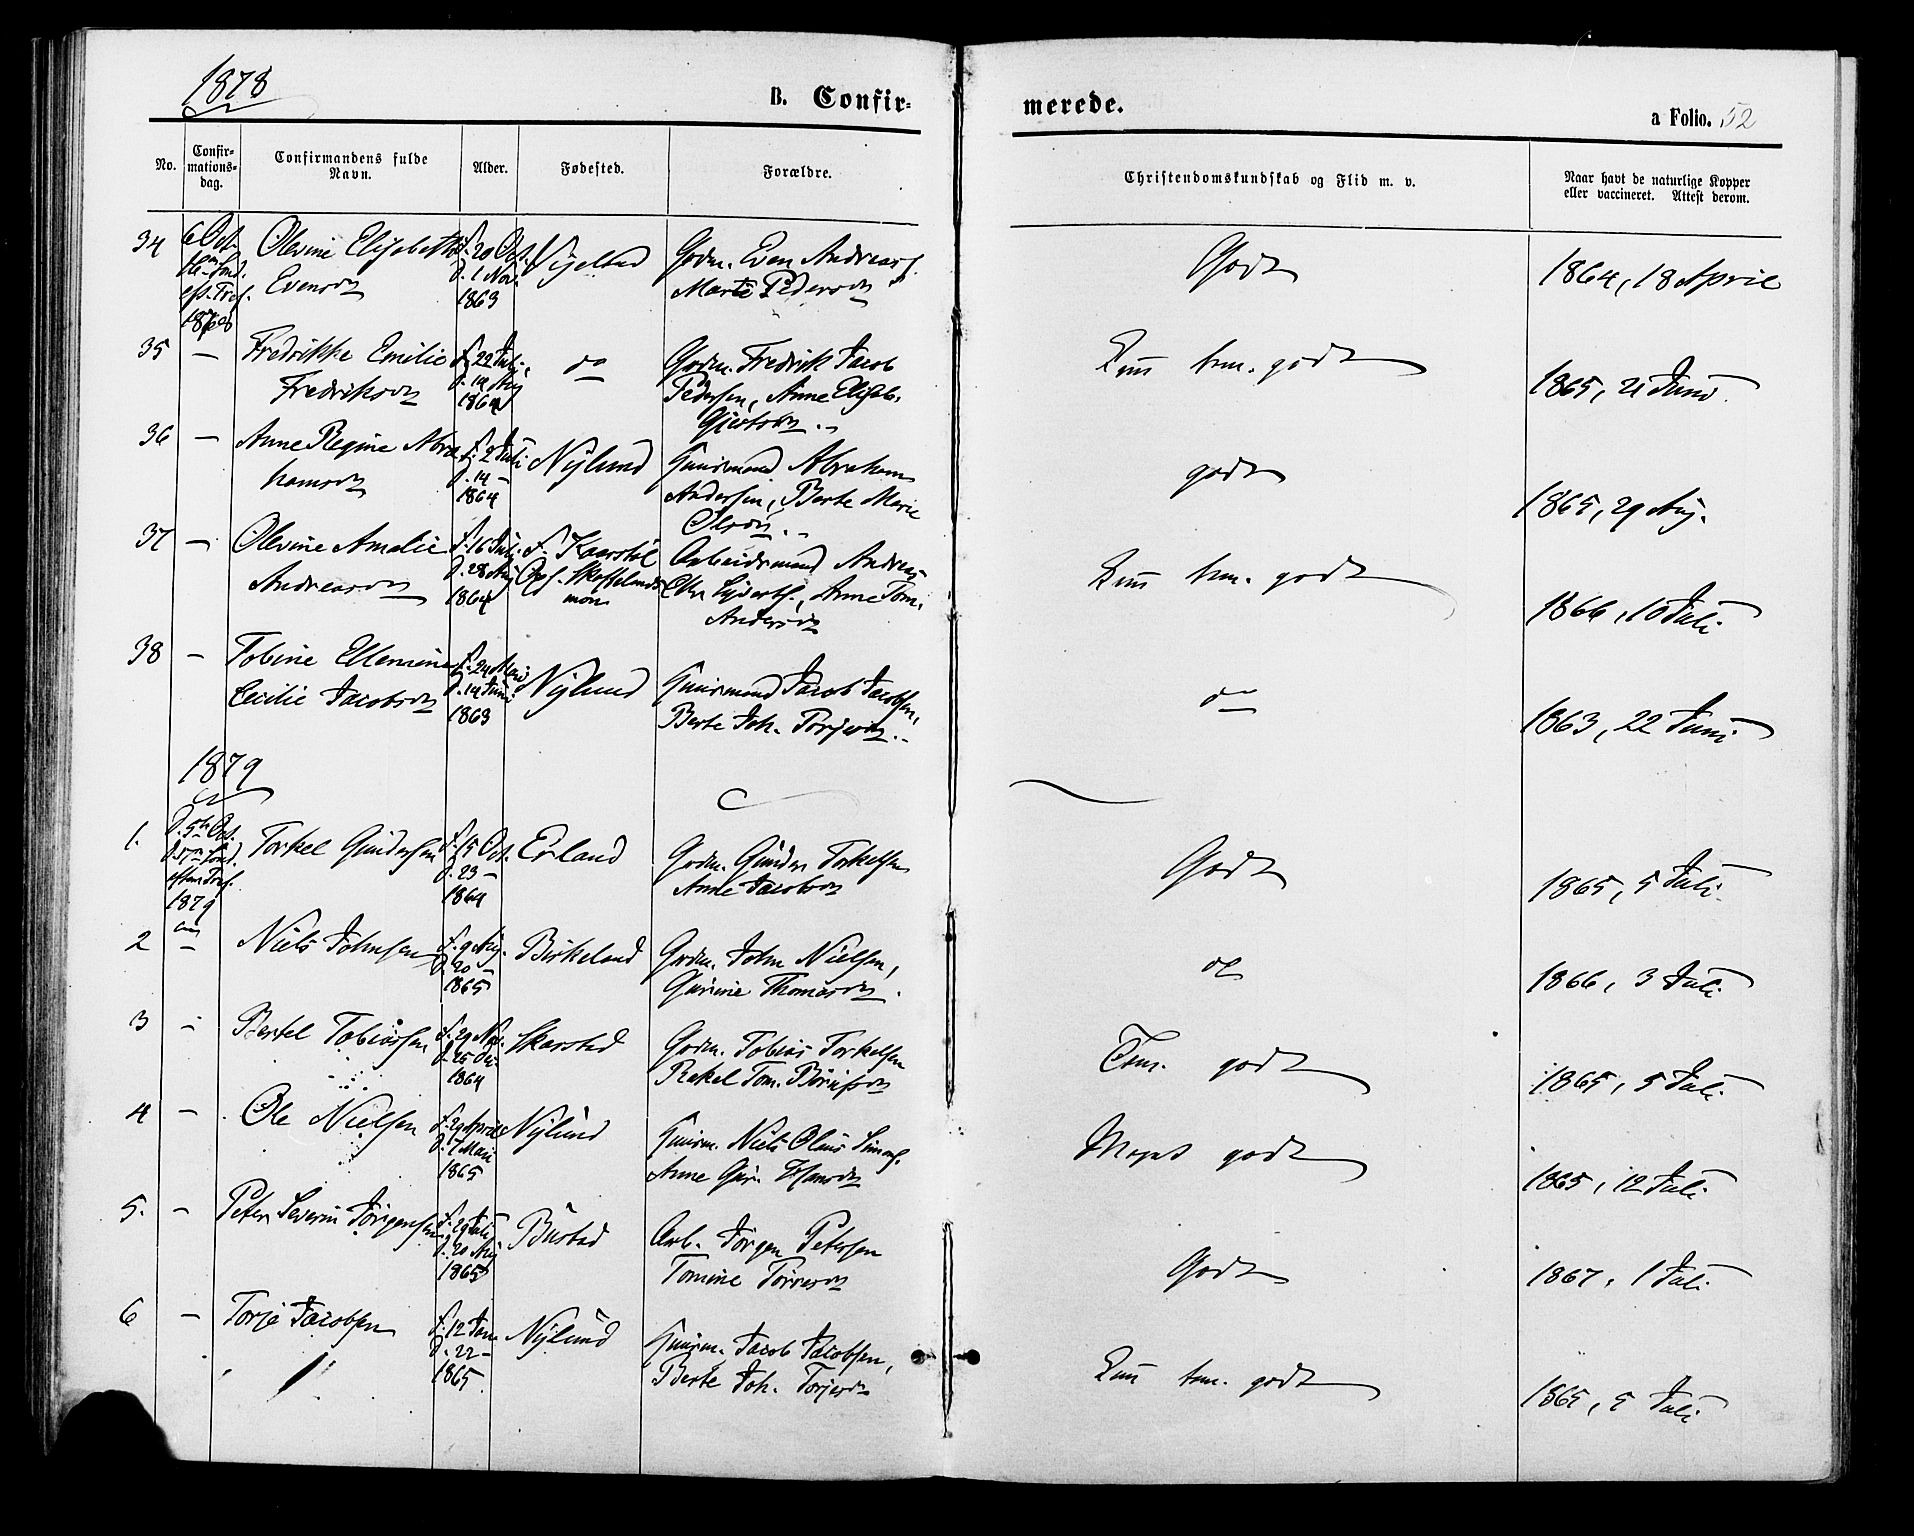 1878
B. Confir-
merede.
a Folio. 52
No.
Confir-
mations-
dag.
Confirmandens fulde
Navn.
Alder.
Fødested.
Forældre.
Christendomskundskab og Flid m. v.
Naar havt de naturlige Kopper
eller vaccineret. Attest derom.
34 6 Oct. Olevine Elisabeth f. 20 Oct. Vigelstad Gdm. Even Andreass. Godt 1864, 18 April
eft. Tref. Evensd d. 1 Nov. Marte Pedersd
1878 1863
35 — Fredrikke Emilie f. 22 Juli do Gdm. Fredrik Jacob tem. godt 1865, 21 Juni
Fredriksd d. 14 Aug Pedersen, Anne Elisab.
1864
36 — Anne Regine Abra f. 2 Juli Nylund Huusmand Abraham godt 1865, 29 Aug.
hamsd d. 14 — Andersen, Berte Marie
1864 Olsd.
37 — Olevine Amalie f. 16 Juli f. Kaarstøl Arbeidsmand Andreas tem. godt 1866, 10 Juli
Andreasd d. 28 Aug Opf. Anne Tom.
1864 moen Andersd
38 — Tobine Ellemine f. 24 Mai Nylund Huusmand Jacob Jacobsen, do 1863, 22 Juni
Cecilie Jacobsd d. 14 Juni Berte Joh. Torjesd.
1863
1879
1. d. 5te Oct. Torkel Gundersen f. 15 Oct. Eiland Gdm. Gunder Torkelsen Godt 1865, 5 Juli
d. 23 — Anne Jacobsd
efter Tref. 1864
1879
2 — Niels Johnsen f. 9 Aug. Birkeland Gdm. John Nielsen, do 1866, 3 Juli
d. 20 — Gurine Thomasd.
1865
3 — Bertel Tobiassen f. 29 Nov. Skarstad Gdm. Tobias Torkelsen Tem. godt 1865, 5 Juli
d. 25 Dec. Rakel Tom.
1864
4 — Ole Nielsen f. 29 April Nylund Huusm. Niels Olaus Simons. Meget godt 1865, 12 Juli
d. 7 Mai Anne Gur. Hansd
1865
5. — Peter Severin Jørgensen f. 29 Juli Bustad Arb. Jørgen Petersen Godt 1867, 1 Juli
d. 20 Aug Tomine Torresd
1865
6 — Torje Jacobsen f. 12 Jan Nylund Huusm. Jacob Jacobsen, tem. godt 1865, 5 Juli
d. 22 — Berte Joh. Torjesd
1865